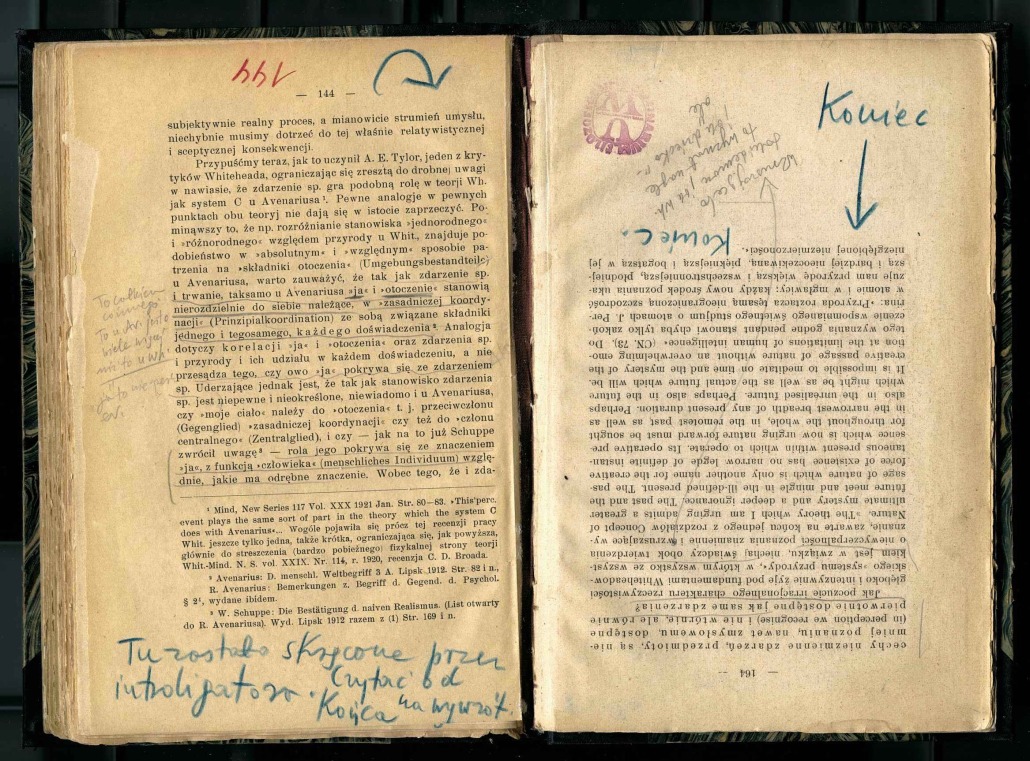 144
— 144 —
subjektywnie realny proces, a mianowicie strumień umysłu,
niechybnie musimy dotrzeć do tej właśnie relatywistycznej
i sceptycznej konsekwencji.
Przypuśćmy teraz, jak to uczynił A. E. Tylor, jeden z kry-
tyków Whiteheada, ograniczając się zresztą do drobnej uwagi
w nawiasie, że zdarzenie sp. gra podobną rolę w teorji Wh.
jak system C u Avenariusa ¹. Pewne analogje w pewnych
punktach obu teoryj nie dają się w istocie zaprzeczyć. Po-
minąwszy to, że np. rozróżnianie stanowiska »jednorodnego«
i »różnorodnego« względem przyrody u Whit., znajduje po-
dobieństwo w »absolutnym« i »względnym« sposobie pa-
trzenia na »składniki otoczenia« (Umgebungsbestandteile)
u Avenariusa, warto zauważyć, że tak jak zdarzenie sp.
i trwanie, taksamo u Avenariusa »ja« i »otoczenie« stanowią
nierozdzielnie do siebie należące, w »zasadniczej koordy-
nacji« (Prinzipialkoordination) ze sobą związane składniki
jednego i tegosamego, każdego doświadczenia ². Analogja
dotyczy korelacji »ja« i »otoczenia« oraz zdarzenia sp.
i przyrody i ich udziału w każdem doświadczeniu, a nie
przesądza tego, czy owo »ja« pokrywa się ze zdarzeniem
sp. Uderzające jednak jest, że tak jak stanowisko zdarzenia
sp. jest niepewne i nieokreślone, niewiadomo i u Avenariusa,
czy »moje ciało« należy do »otoczenia« t. j. przeciwczłonu
(Gegenglied) »zasadniczej koordynacji« czy też do »członu
centralnego« (Zentralglied), i czy — jak na to już Schuppe
zwrócił uwagę ³ — rola jego pokrywa się ze znaczeniem
»ja«, z funkcją »człowieka« (menschliches Individuum) wzglę-
dnie, jakie ma odrębne znaczenie. Wobec tego, że i zda-
¹ Mind, New Series 117 Vol. XXX 1921 Jan. Str. 80—83. »This'perc.
event plays the same sort of part in the theory which the system C
does with Avenarius«... Wogóle pojawiła się prócz tej recenzji pracy
Whit. jeszcze tylko jedna, także krótka, ograniczająca się, jak powyższa,
głównie do streszczenia (bardzo pobieżnego) fizykalnej strony teorji
Whit-Mind. N. S. vol. XXIX. Nr. 114, r. 1920, recenzja C. D. Broada.
² Avenarius: D. menschl. Weltbegriff 3 A. Lipsk 1912. Str. 82 i n.,
R. Avenarius: Bemerkungen z. Begriff d. Gegend. d. Psychol.
§ 2¹, wydane ibidem.
³ W. Schuppe: Die Bestätigung d. naiven Realismus. (List otwarty
do R. Avenariusa). Wyd. Lipsk 1912 razem z (1) Str. 169 i n.
Tu zostało skręcone przez
introligatora. Czytać od
Końca na wywrót.
Koniec
— 164 —
cechy niezmienne zdarzeń, przedmioty, są nie-
mniej poznaniu, nawet zmysłowemu, dostępne
(in perception we recognise) i nie wtórnie, ale równie
pierwotnie dostępne jak same zdarzenia?
Jak poczucie irracjonalnego charakteru rzeczywistości
głęboko i intenzywnie żyje pod fundamentami Whiteheadow-
skiego »systemu przyrody«, w którym wszystko ze wszyst-
kiem jest w związku, niechaj świadczy obok twierdzenia
o niewyczerpalności poznania znamienne i wzruszające wy-
znanie, zawarte na końcu jednego z rozdziałów Concept of
Nature. »The theory which I am urging admits a greater
ultimate mystery and a deeper ignorance. The past and the
future meet and mingle in the ill-defined present. The pas-
sage of nature which is only another name for the creative
force of existence has no narrow legde of definite instan-
taneous present within which to operate. Its operative pre-
sence which is now urging nature forward must be sought
for throughout the whole, in the remotest past as well as
in the narrowest breadth of any present duration. Perhaps
also in the unrealised future. Perhaps also in the future
which might be as well as the actual future which will be.
It is impossible to meditate on time and the mystery of the
creative passage of nature without an overwhelming emo-
tion at the limitations of human intelligence« (CN, 73). Do
tego wyznania godne pendant stanowi chyba tylko zakoń-
czenie wspomnianego świetnego studjum o atomach J. Per-
rina: »Przyroda roztacza tęsamą nieograniczoną szczodrość
w atomie i w mgławicy; każdy nowy środek poznania uka-
zuje nam przyrodę większą i wszechstronniejszą, płodniej-
szą i bardziej nieoczekiwaną, piękniejszą i bogatszą w jej
niezgłębionej niezmierzoności«.
Koniec.